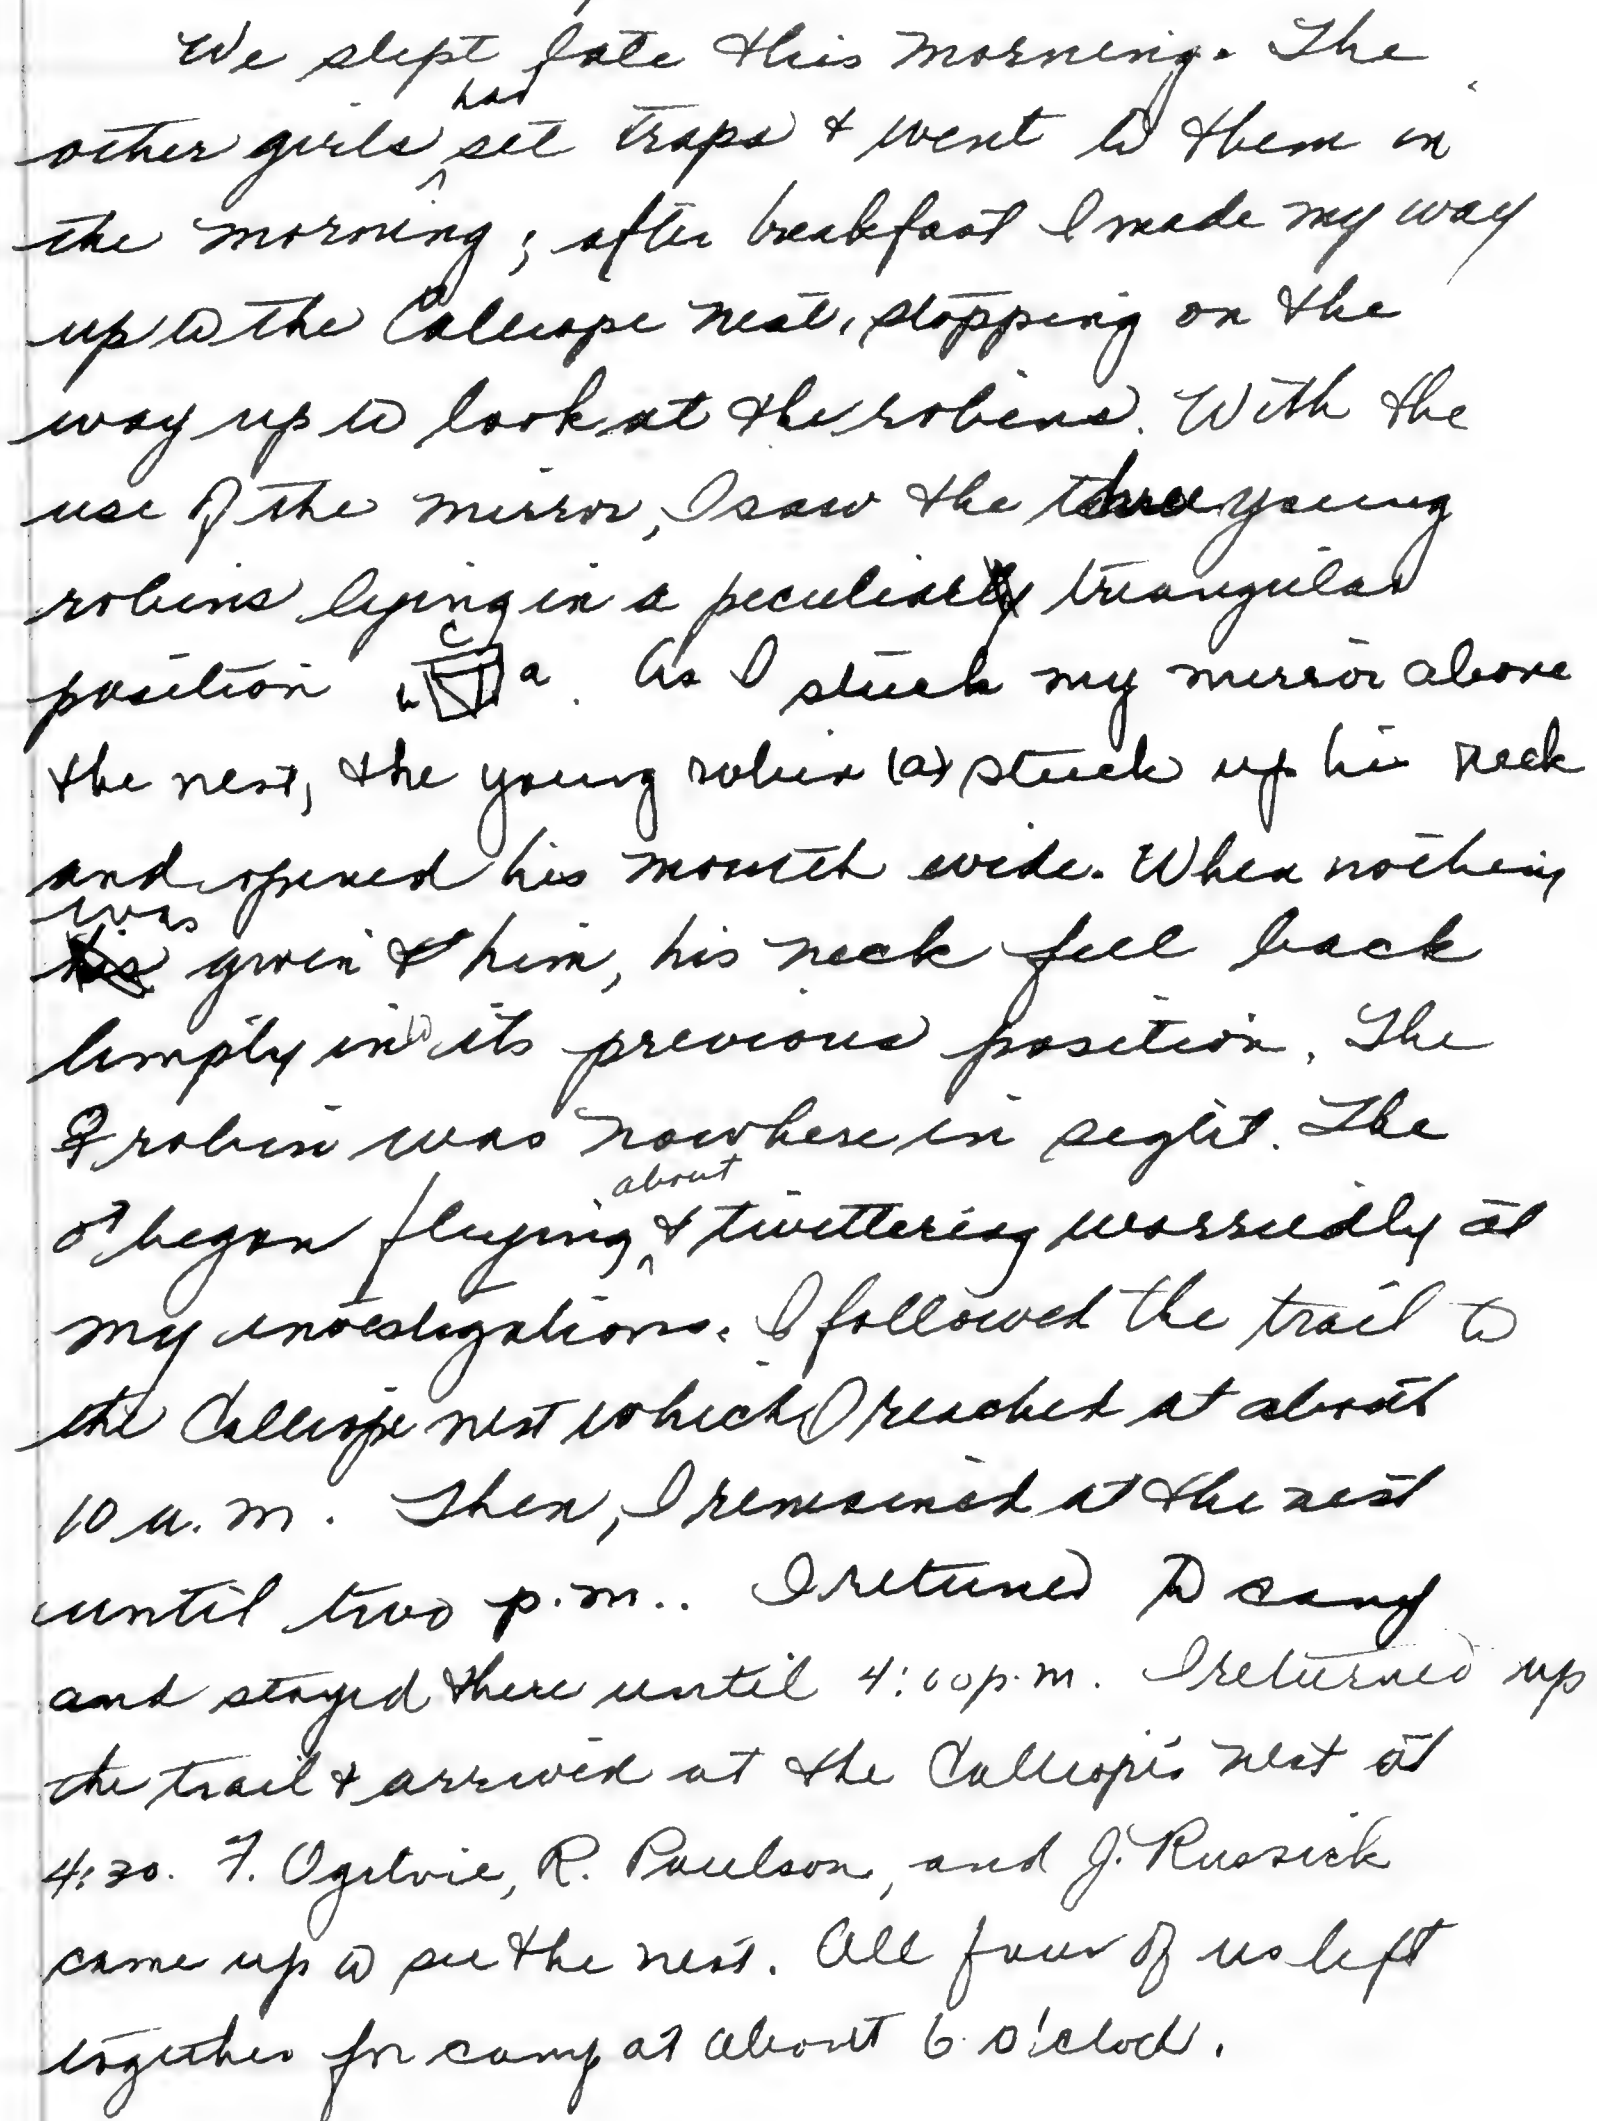 We slept late this morning. The
other girls had set traps & went to them in
the morning; after breakfast I made my way
up to the Calliope nest, stopping on the
way up to look at the robins. With the
use of the mirror, I saw the three young
robins lying in a peculiar triangular
position b c a. As I stuck my mirror above
the nest, the young robin (a) stuck up his neck
and opened his mouth wide. When nothing
was given to him, his neck fell back
limply into its previous position. The
♀ robin was nowhere in sight. The
♂ began flying about & twittering worriedly at
my investigations. I followed the trail to
the Calliope nest which I reached at about
10 a.m. Then, I remained at the nest
until two p.m.. I returned to camp
and stayed there until 4:00 p.m. I returned up
the trail & arrived at the Calliope's nest at
4:30. F. Ogilvie, R. Paulson, and J. Russick
came up to see the nest. All four of us left
together for camp at about 6 o'clock.